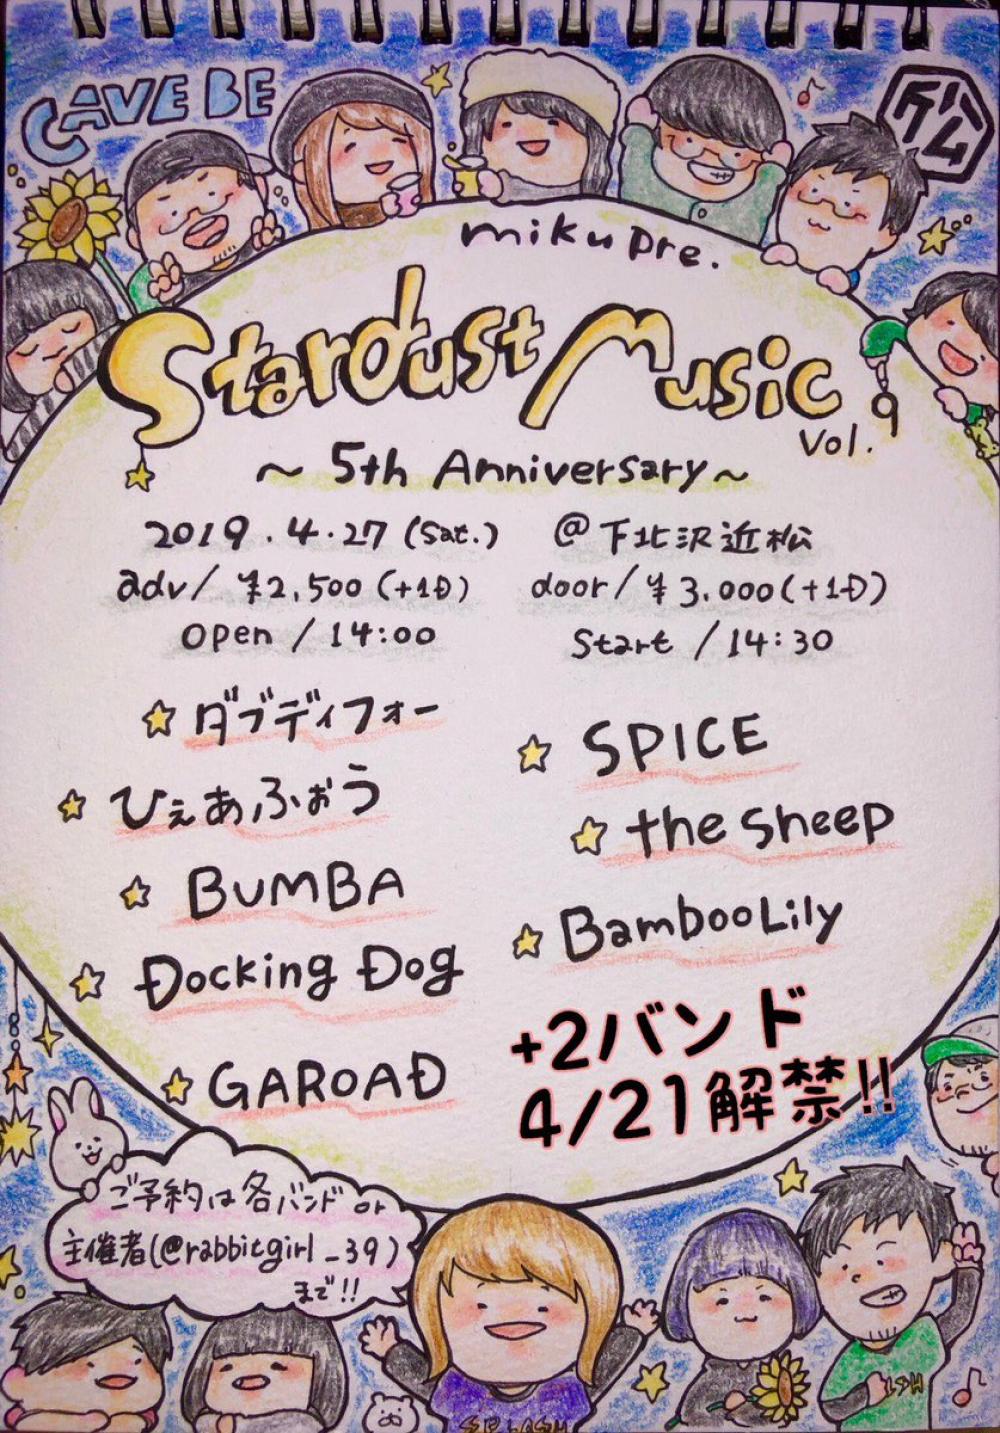 CAVE BE
miku pre.
Stardust Music
vol. 9
~ 5th Anniversary ~
2019.4.27 (Sat.) @下北沢近松
adv/ ¥2,500 (+1D) door/ ¥3,000 (+1D)
open / 14:00 Start / 14:30
☆ ダブディフォー
☆ SPICE
☆ ひぇあふぉう
☆ the sheep
☆ BUMBA
☆ BambooLily
☆ Docking Dog
☆ GAROAD
+2バンド
4/21解禁!!
ご予約は各バンド or
主催者(@rabbitgirl_39)
まで!!